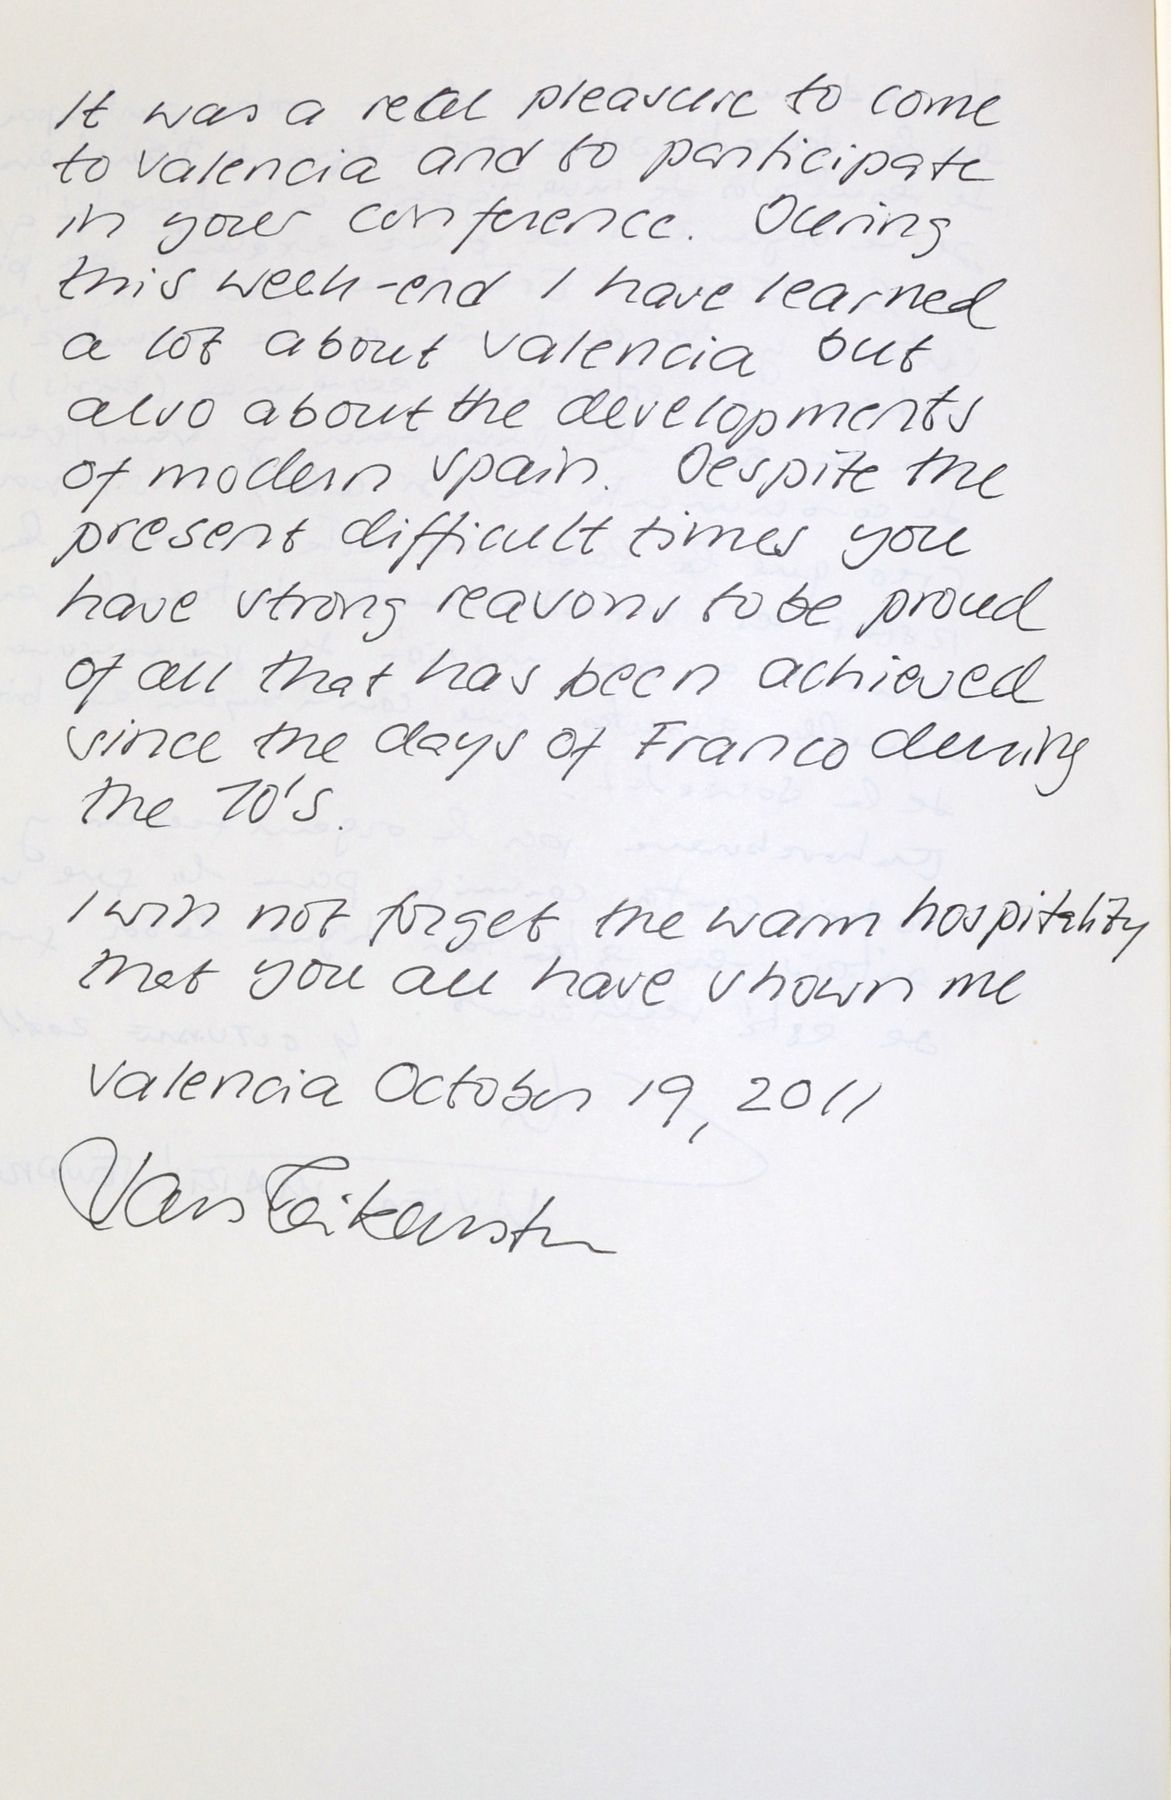 It was a real pleasure to come
to Valencia and to participate
in your conference. During
this week-end I have learned
a lot about Valencia but
also about the developments
of modern Spain. Despite the
present difficult times you
have strong reasons to be proud
of all that has been achieved
since the days of Franco during
the 70's.
I will not forget the warm hospitality
that you all have shown me
Valencia October 19, 2011